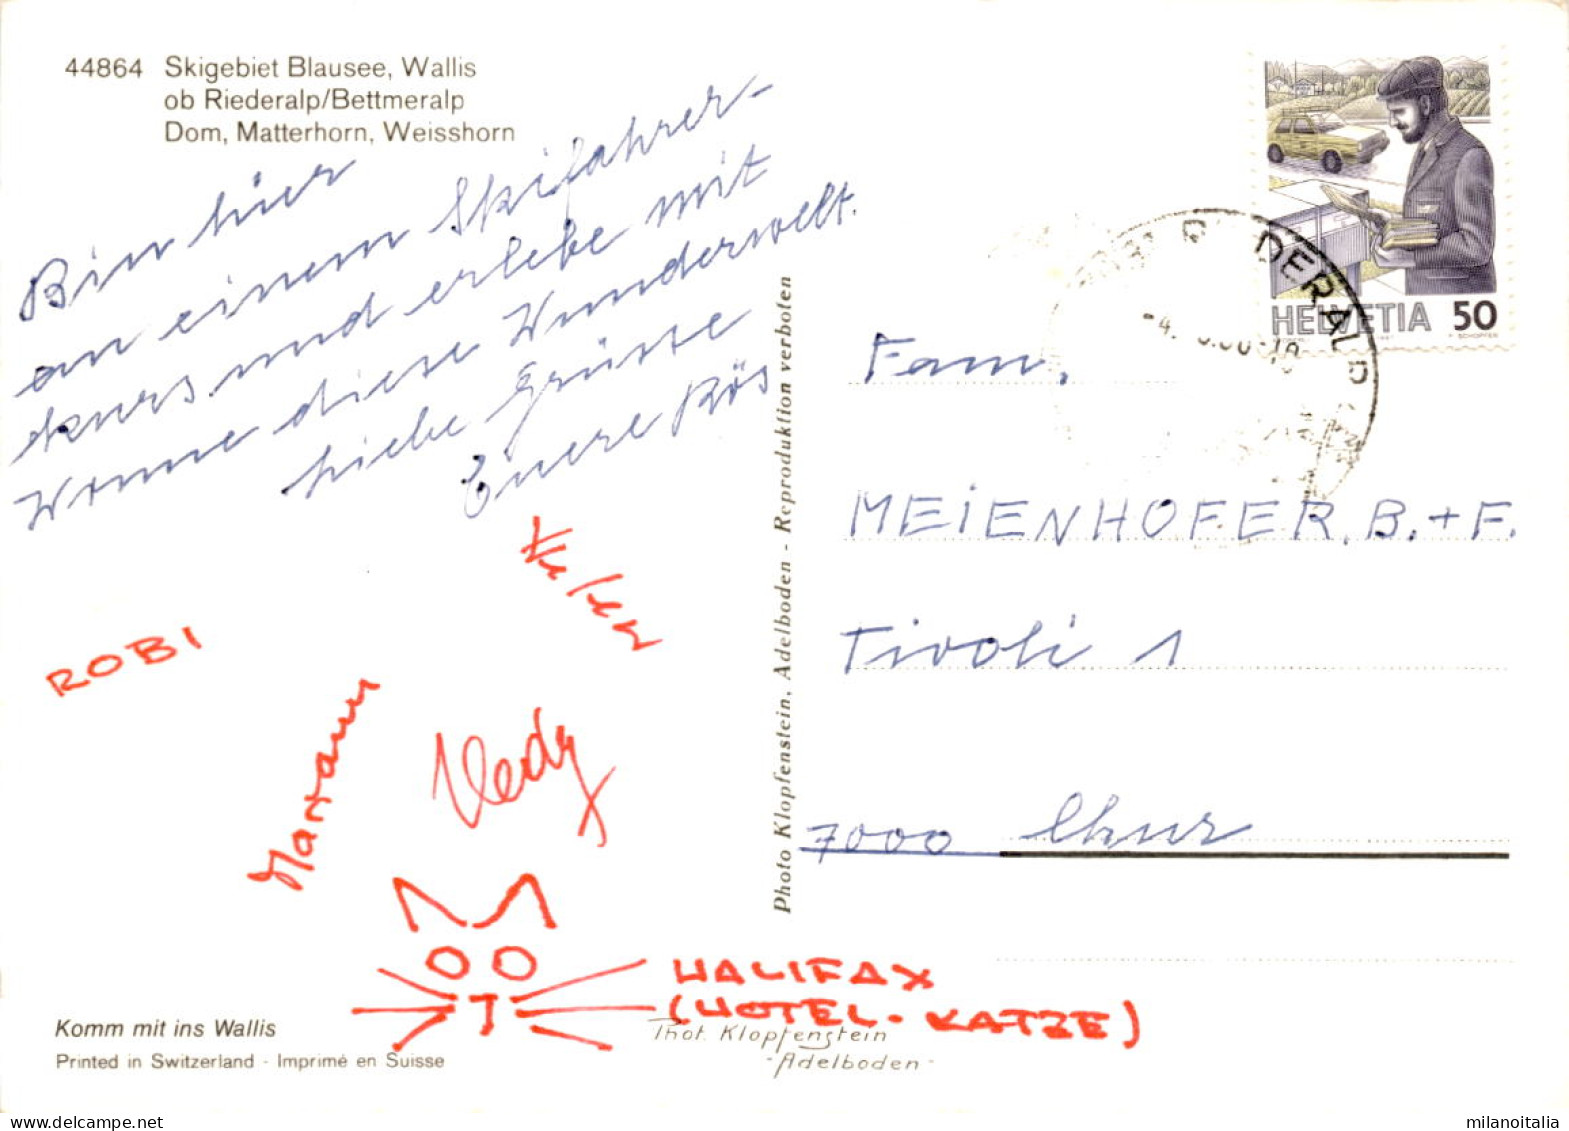 44864 Skigebiet Blausee, Wallis
ob Riederalp/Bettmeralp
Dom, Matterhorn, Weisshorn
Bin hier
an einem Skifahrer-
kurs und erlebe mit
Wonne diese Wunderwelt.
Liebe Grüsse
Euere Rös
ROBI
Mariann
Hedy
HALIFAX
(HOTEL-KATZE)
Komm mit ins Wallis
Printed in Switzerland - Imprimé en Suisse
Phot. Klopfenstein
- Adelboden -
Photo Klopfenstein, Adelboden - Reproduktion verboten
HELVETIA 50
RIEDERALP
Fam.
MEiENHOFER. B. + F.
Tivoli 1
7000 Chur
milanoitalia